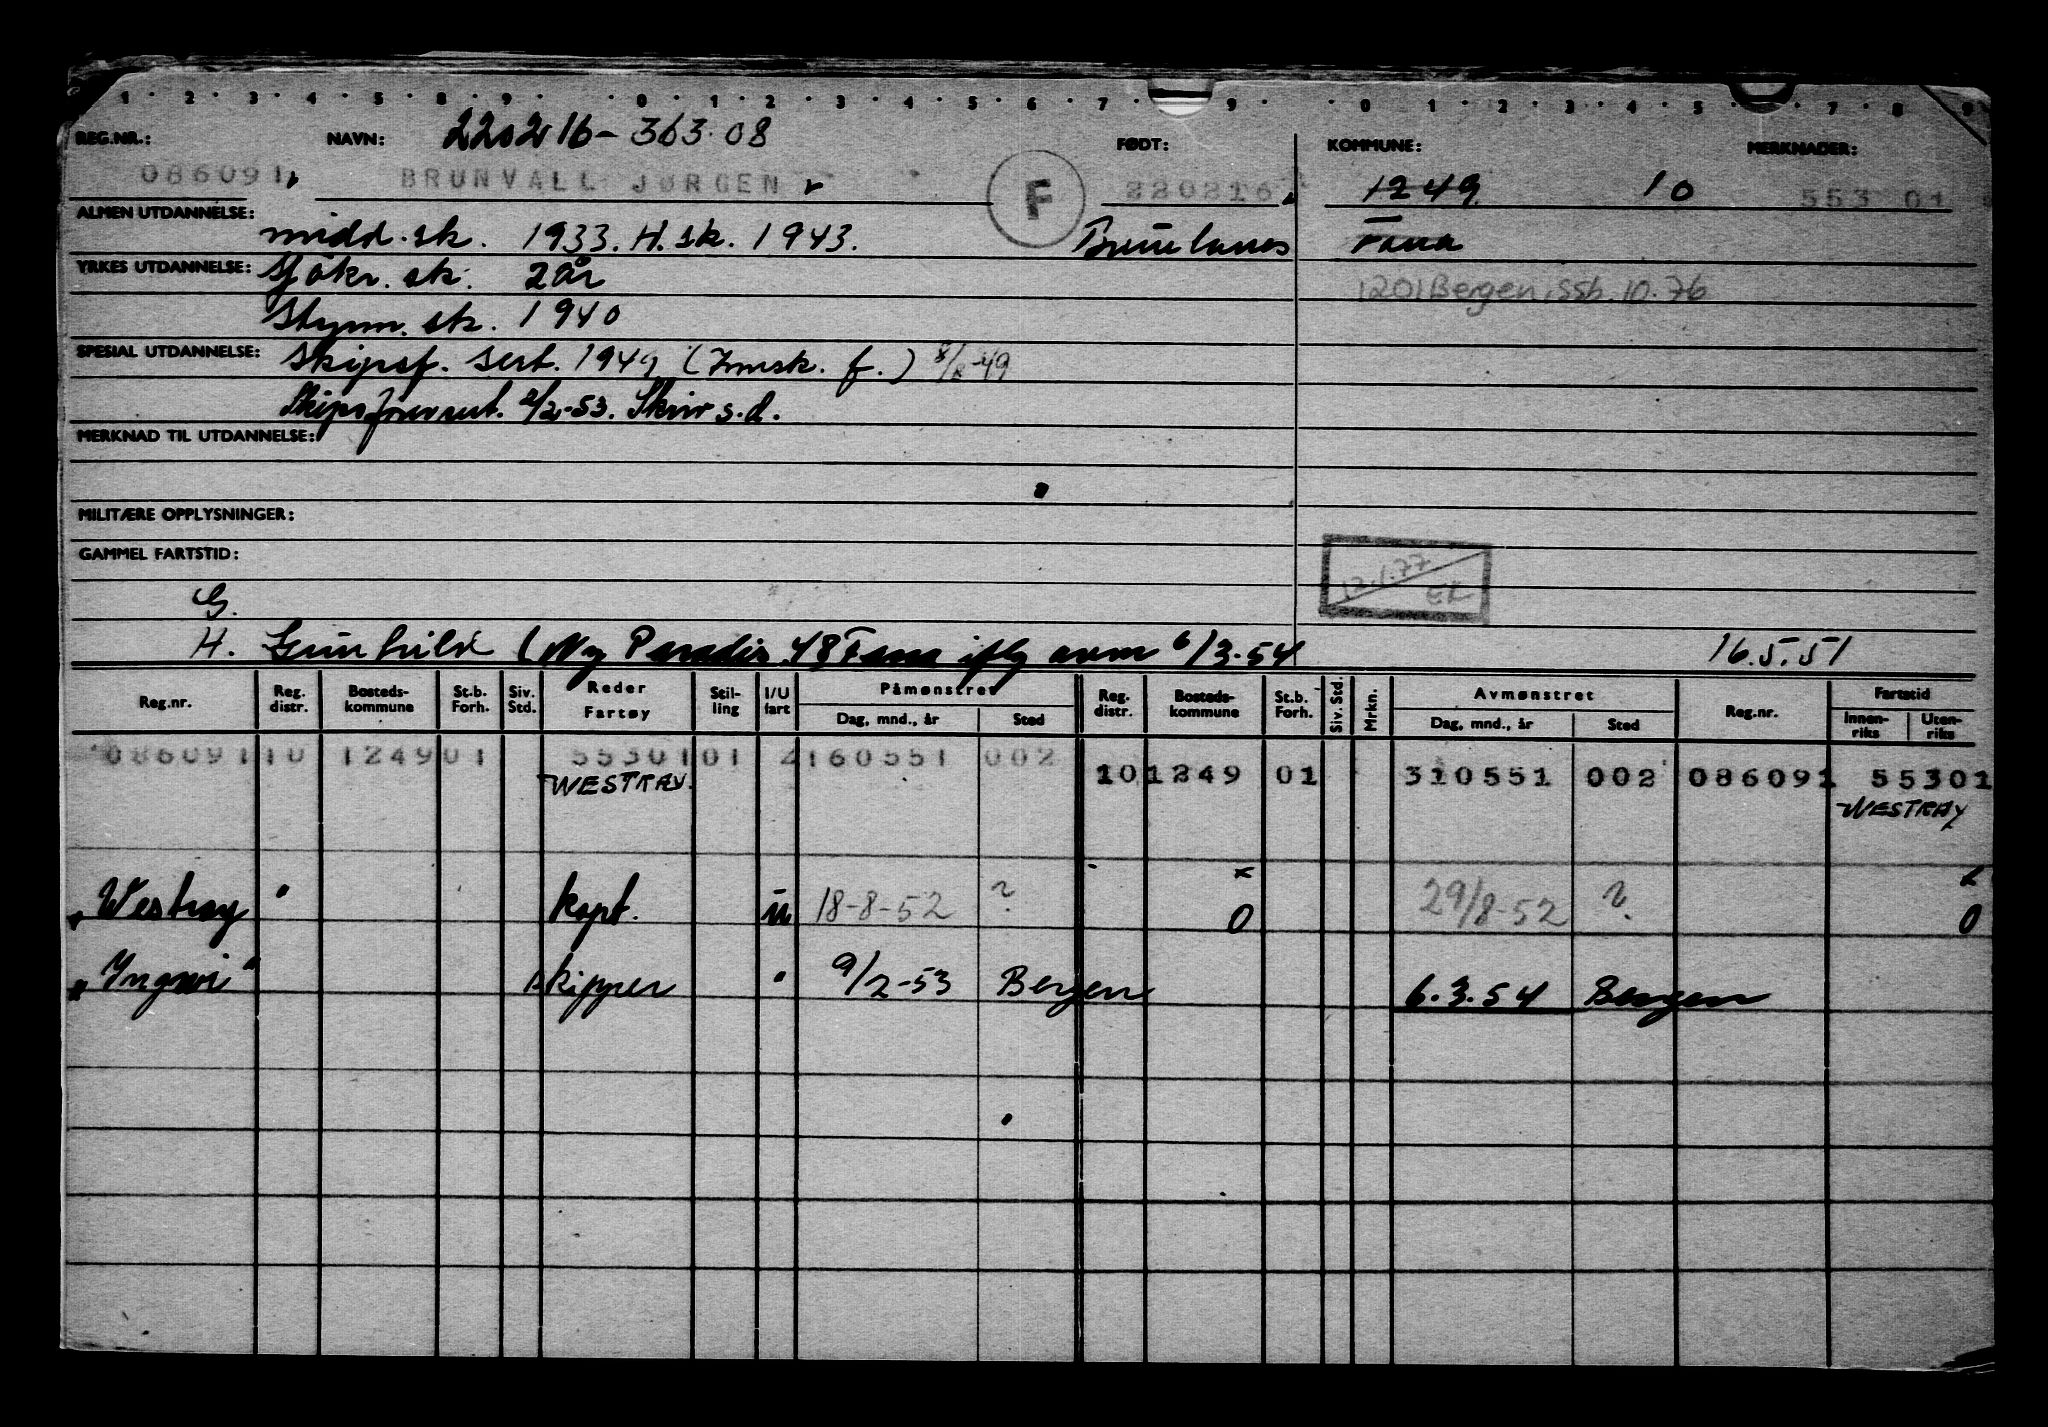 1 · 2 · 3 · 4 · 5 · 8 · 9 · · 0 · 1 · 2 · 3 · 4 · 5 · 6 · 7 · 9 · · 0 · 1 · 2 · 3 · 4 · 5 · 7 · 8 · 9
REG.NR.: NAVN: 220216-363.08 FØDT: KOMMUNE: MERKNADER:
086091 BRUNVALL JØRGEN F 220216 1249 10 553 01
ALMEN UTDANNELSE: midd.sk. 1933. H.sk. 1943. Brunlanes Fana
YRKES UTDANNELSE: Sjökr. sk. 2 år 1201 Bergen, ssb. 10.76
Styrm. sk. 1940
SPESIAL UTDANNELSE: Skipsf. sert. 1949 (Innsk. f.)
Skipsfører sert. 2/2-53. Skriv s.d.
MERKNAD TIL UTDANNELSE:
MILITÆRE OPPLYSNINGER:
GAMMEL FARTSTID:
12.1.77 EL
G.
H. Gunhild (Ny Paradis 48 Fana iflg avm 6/3.54 16.5.51
Reg.nr. Reg. distr. Bosteds-kommune St.b. Forh. Siv. Std. Reder Fartøy Stil-ling I/U fart Påmønstret Dag, mnd., år Sted Reg. distr. Bosteds-kommune St.b. Forh. Siv. Std. Mrkn. Avmønstret Dag, mnd., år Sted Reg.nr. Fartstid Innen-riks Uten-riks
086091 10 1249 01 55301 01 2 160551 002
10 1249 01 310551 002 086091 55301
WESTRAY. WESTRAY
"Westray" kapt. u 18-8-52 ? x 0 29/8-52 ? x 0
"Yngvi" skipper " 9/2-53 Bergen 6.3.54 Bergen